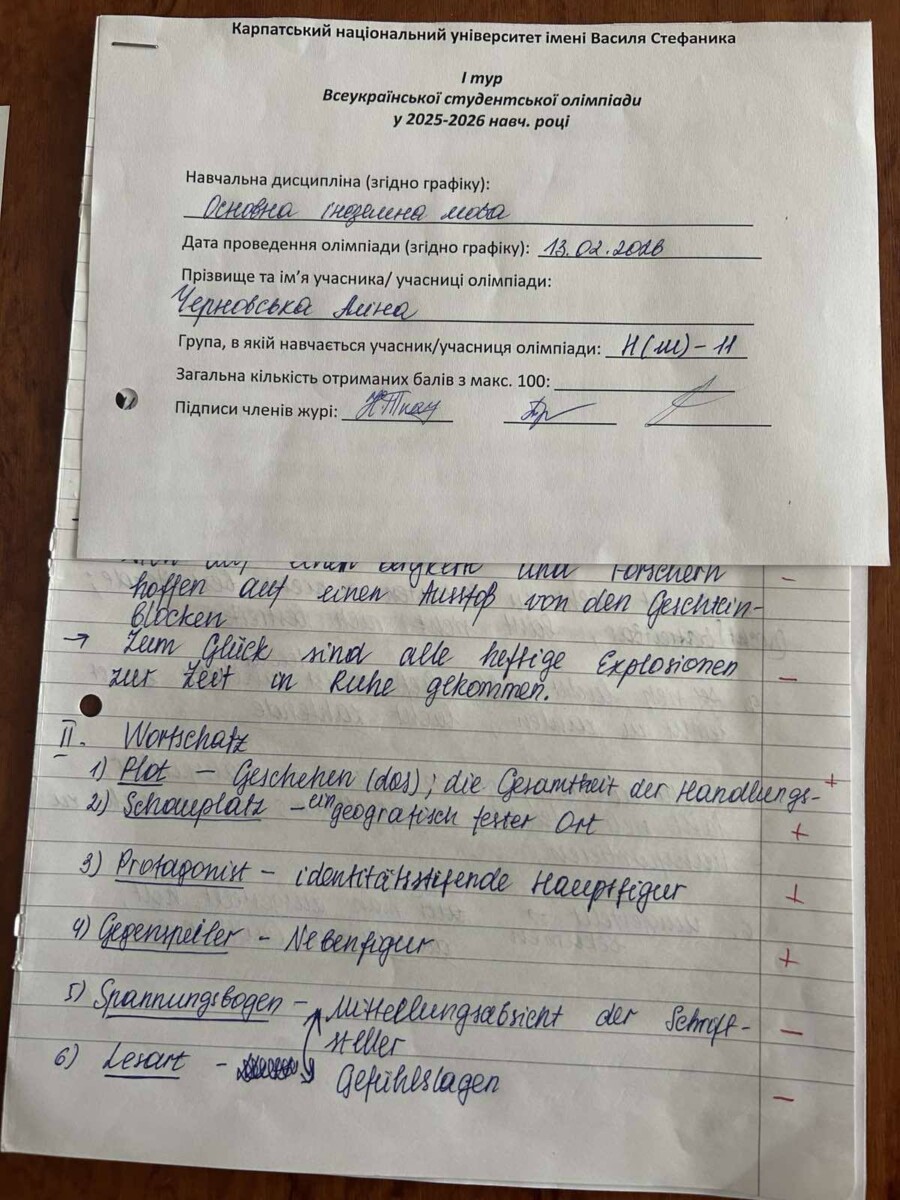 Карпатський національний університет імені Василя Стефаника
І тур
Всеукраїнської студентської олімпіади
у 2025-2026 навч. році
Навчальна дисципліна (згідно графіку):
Основна іноземна мова
Дата проведення олімпіади (згідно графіку): 13.02.2026
Прізвище та ім’я учасника/ учасниці олімпіади:
Черновська Аліна
Група, в якій навчається учасник/учасниця олімпіади: Н(ш)-11
Загальна кількість отриманих балів з макс. 100:
Підписи членів журі:
auf einen und Forschern -
hoffen auf einen Ausstoß von den Geschtein-
Blocken
→ Zum Glück sind alle heftige Explosionen
zur Zeit in Ruhe gekommen. -
II. Wortschatz
1) Plot – Geschehen (das); die Gesamtheit der Handlungs- +
2) Schauplatz – ein geografisch fester Ort +
3) Protagonist – identitätsstifende Hauptfigur +
4) Gegenspieler – Nebenfigur +
5) Spannungsbogen – Mitteilungsabsicht der Schrift- -
steller
6) Lesart – Gefühlslagen -